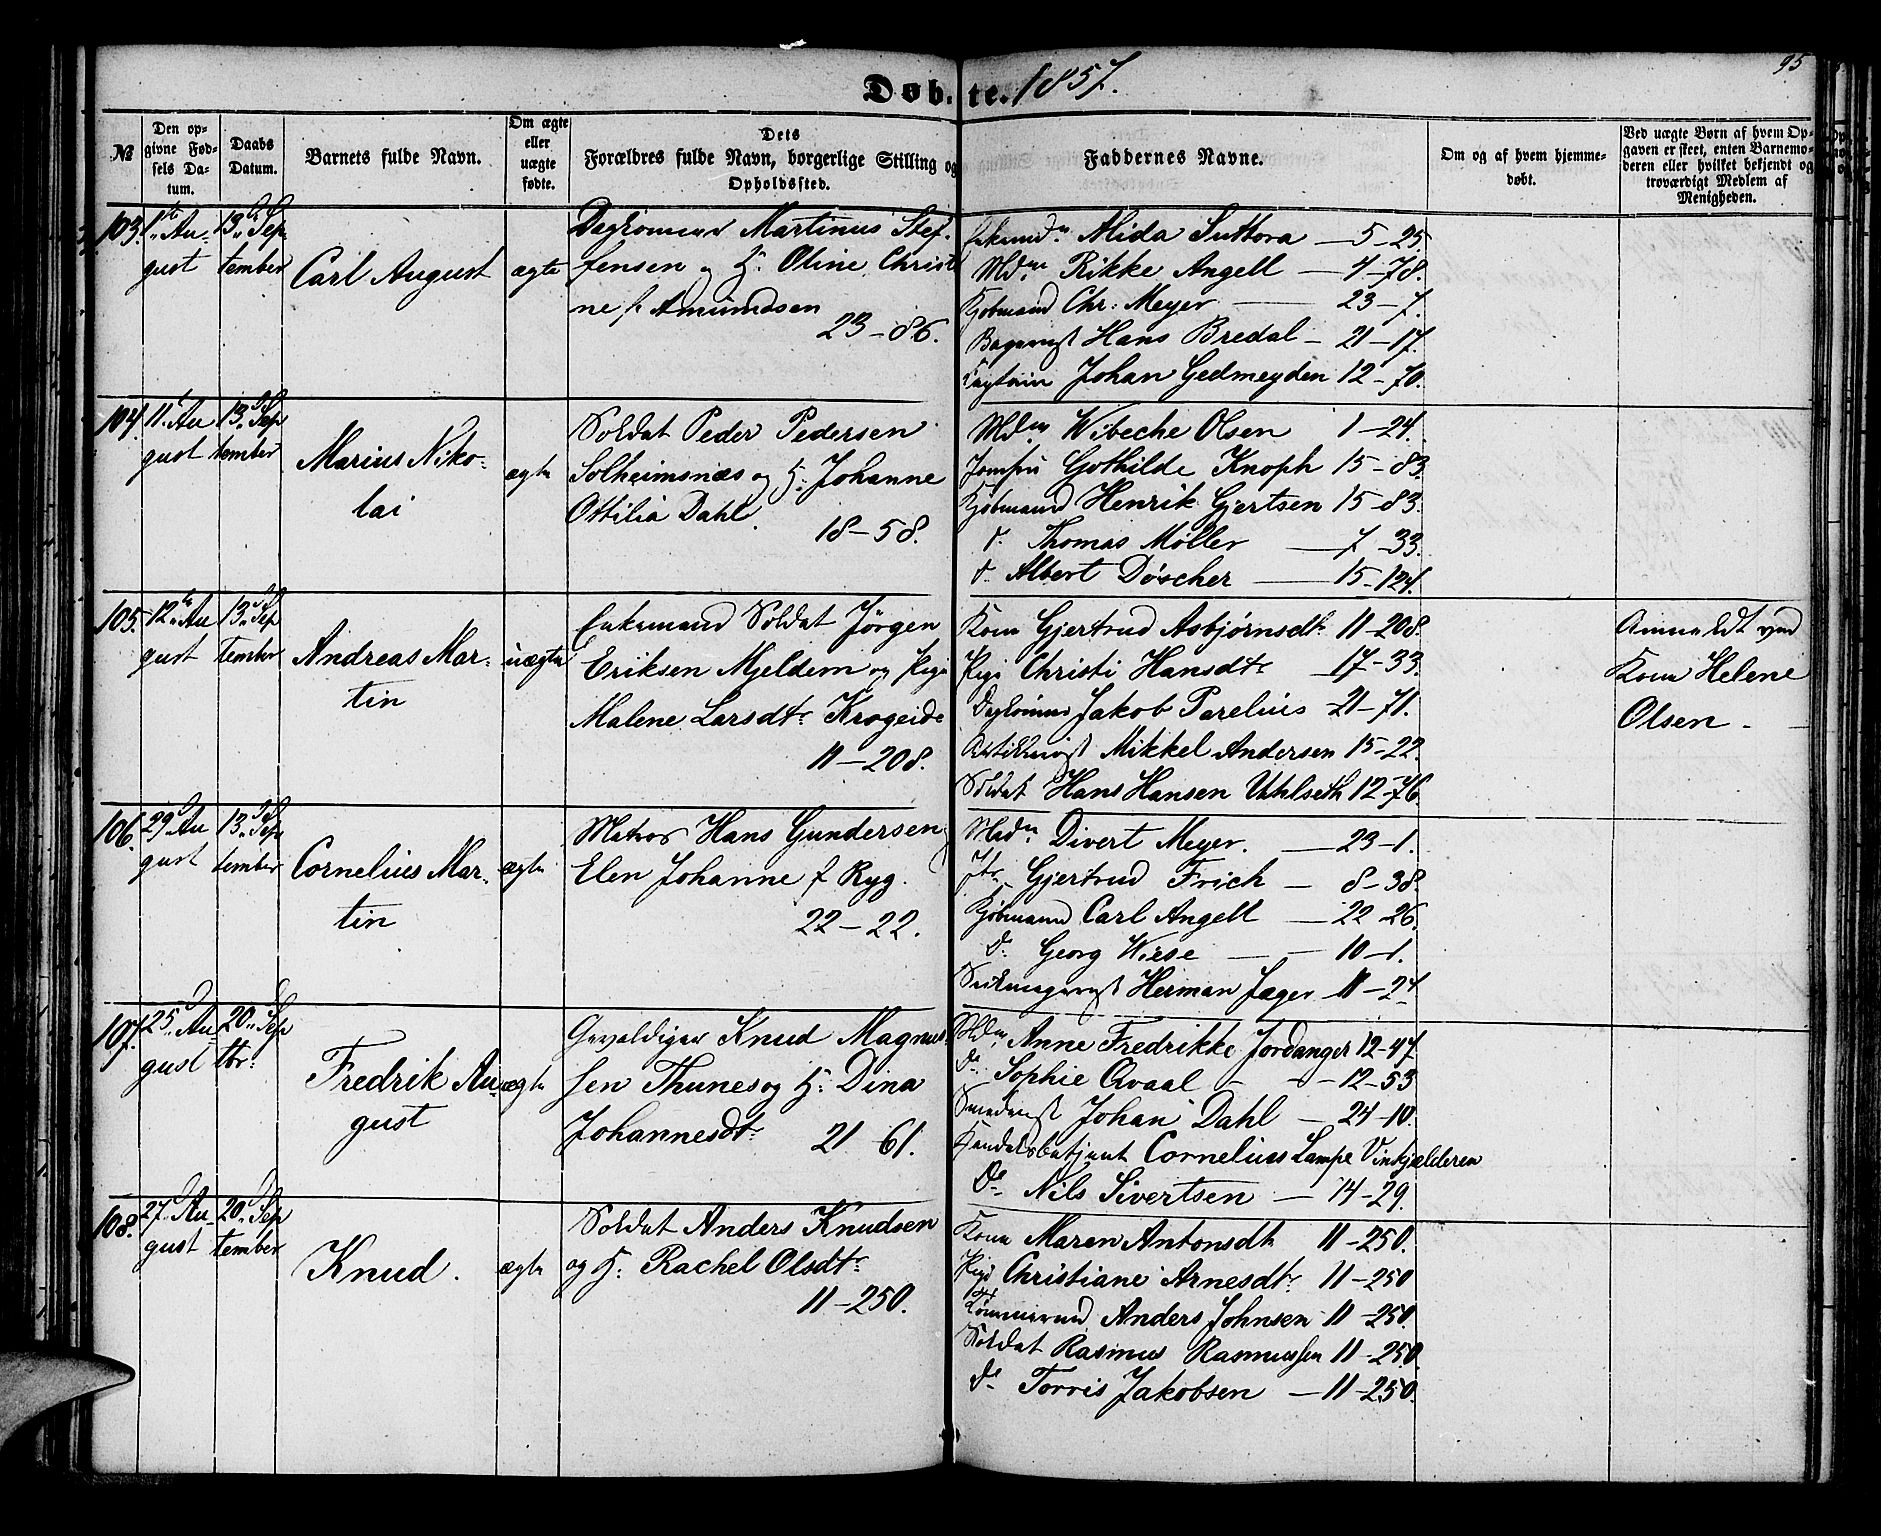 95
Døbte. 1857.
№
Den opgivne Fødsels Datum.
Daabs Datum.
Barnets fulde Navn.
Om ægte eller uægte fødte.
Dets Forældres fulde Navn, borgerlige Stilling og Opholdssted.
Faddernes Navne.
Om og af hvem hjemmedøbt.
Ved uægte Børn af hvem Opgaven er skeet, enten Barnemoderen eller hvilket bekjendt og troværdigt Medlem af Menigheden.
103. 1ste Au- 13de Sep
gust tember
Carl August
ægte
Martinus Stef-
fensen og H. Oline Christi
ne f. Amundsen
23-86.
Alida Suttora - 5-25.
Mdme Rikke Angell - 4-78.
Kjøbmand Chr: Meyer - 23-7.
Hans Bredal - 21-17.
Johan Gedmeyden 12-70.
104. 11te Au 13de Sep
gust tember
Marius Niko-
lai
ægte
Soldat Peder Pedersen
Solheimsnæs og H: Johanne
Ottilia Dahl.
18-58.
Mdme Wibeche Olsen 1-24.
Jomfru Gothilde Knoph 15-83.
Kjøbmand Henrik Gjertsen 15-83.
d. Thomas Møller - 7-33.
d. Albert Döscher - 15-124.
105. 12te Au 13de Sep
gust tember
Andreas Mar-
tin
uægte
Enkemand Soldat Jörgen
Eriksen Mjeldem og Pige
Malene Larsdtr Krogeide
11-208.
Kone Gjertrud Asbjørnsdtr 11-208.
Pige Christi Hansdtr - 17-33.
Jakob Parelius - 21-71.
Mikkel Andersen 15-22.
Soldat Hans Hansen Uthlseth 12-76.
Anmeldt ved
Kone Helene
Olsen -
106. 29de Au 13de Sep
gust tember
Cornelius Mar-
tin
ægte
Matros Hans Gundersen,
Elen Johanne f Ryg.
22-22.
Madme Divert Meyer. - 23-1.
Jfr. Gjertrud Frich - 8-38.
Kjøbmand Carl Angell - 22-26.
d. Georg Wiese - 10-1.
Herman Jæger 11-24
107. 25de Au- 20de Sep
gust tbr:
Fredrik Au-
gust
ægte
Gevaldiger Knud Magnus-
sen Thunes og H: Dina
Johannesdtr. 21-61.
Mdme Anne Fredrikke Jordanger 12-47
do Sophie Qvaal - - 12-53
Johan Dahl - 24-10.
Handelsbetjent Cornelius Lampe Vinkjælderen
Do Nils Sivertsen - 14-29.
108. 27de Au- 20de Sep
gust tember
Knud.
ægte
Soldat Anders Knudsen
og H: Rachel Olsdtr.
11-250.
Kone Maren Antonsdtr 11-250.
Pige Christiane Arnesdtr. 11-250
Tømmermd Anders Johnsen 11-250.
Soldat Rasmus Rasmussen 11-250.
do Torris Jakobsen - 11-250.